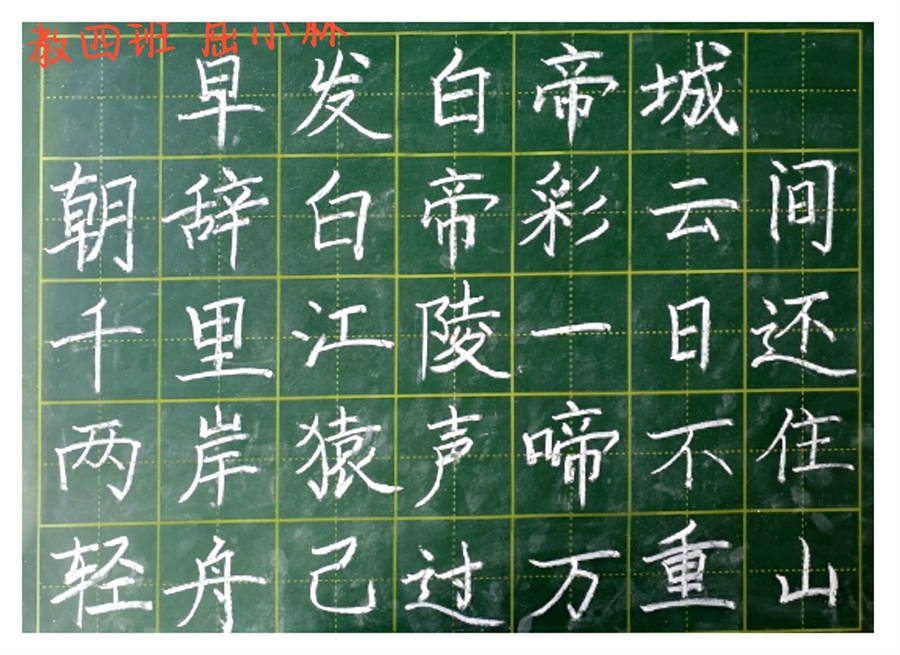 教四班 屈小林
早发白帝城
朝辞白帝彩云间
千里江陵一日还
两岸猿声啼不住
轻舟已过万重山